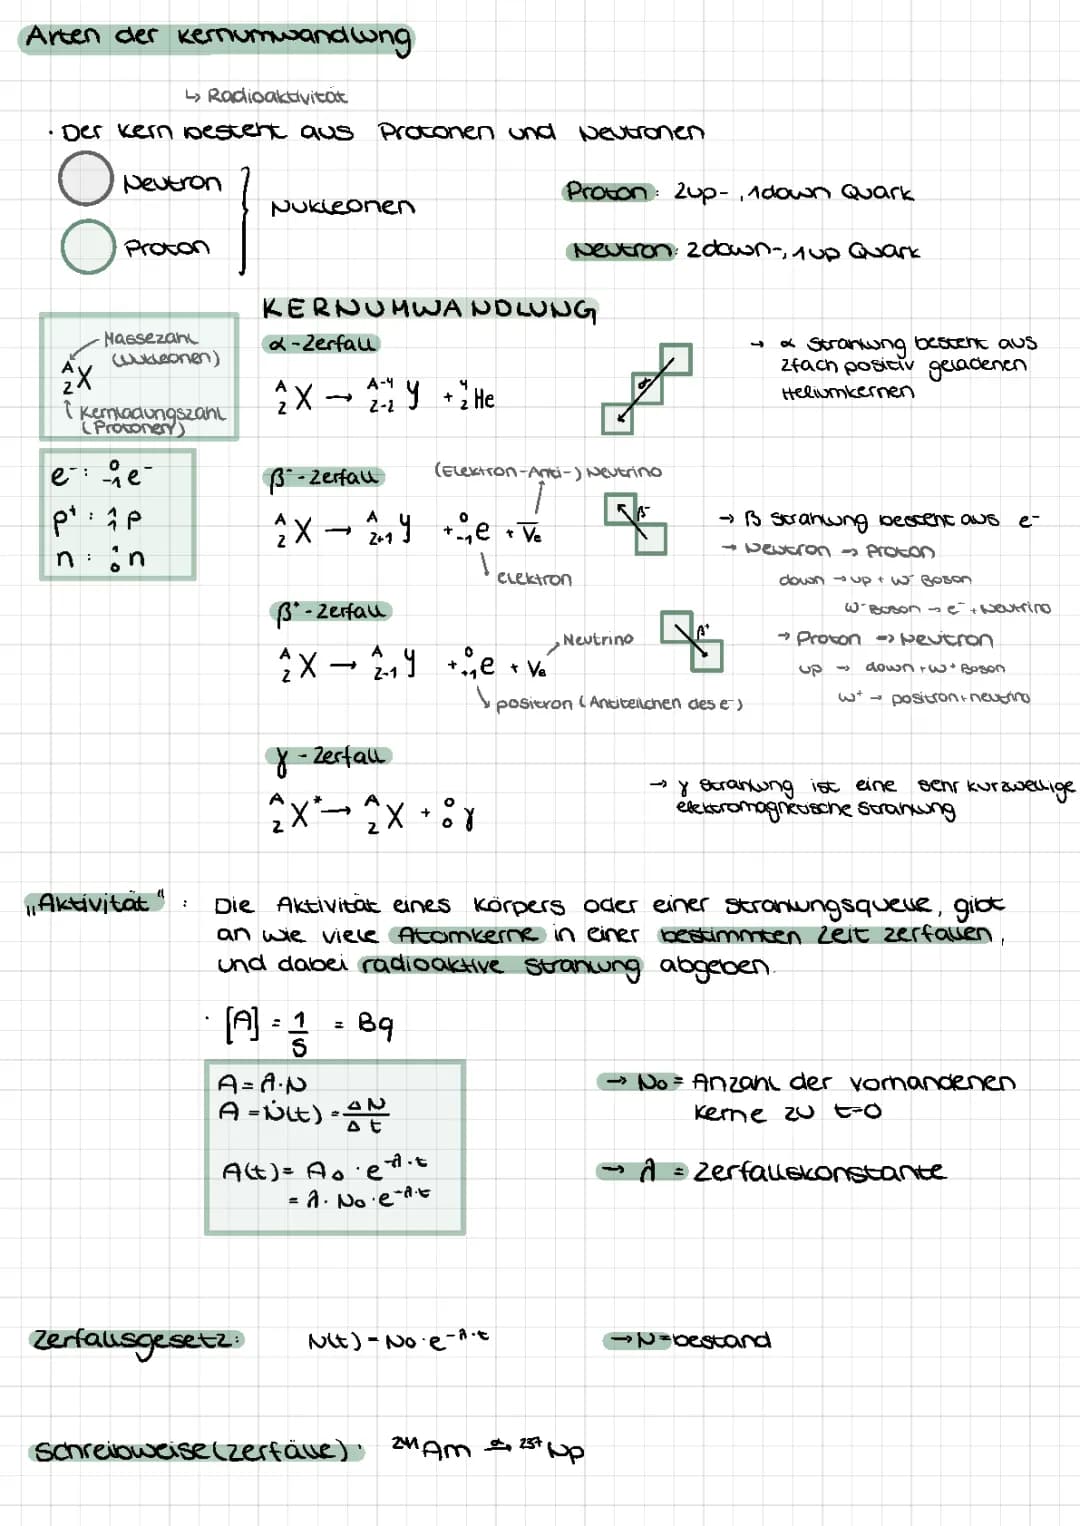 Arten der Kernumwandlung
↳ Radioaktivität
· Der Kern besteht aus Protonen und Neutronen
Neutron
Proton
Nukleonen
Proton: 2up-, 1down Quark
Neutron: 2down-, 1up Quark
KERNUMWANDLUNG
Massezahl
(Nukleonen)
A
Z X
↑ Kernladungszahl
(Protonen)
e⁻: ⁰₋₁e⁻
p⁺: ¹₁p
n: ¹₀n
α-Zerfall
ᴬ_Z X → ᴬ⁻⁴_Z-2 Y + ⁴₂He
α
→ α Strahlung besteht aus
2fach positiv geladenen
Heliumkernen
β⁻-Zerfall
(Elektron-Anti-) Neutrino
ᴬ_Z X → ᴬ_Z+1 Y + ⁰₋₁e + V̅e
Elektron
β⁻
→ β Strahlung besteht aus e⁻
→ Neutron → Proton
down → up + W⁻ Boson
W⁻ Boson → e⁻ + Neutrino
β⁺-Zerfall
Neutrino
ᴬ_Z X → ᴬ_Z-1 Y + ⁰₊₁e + Ve
positron (Antiteilchen des e⁻)
β⁺
→ Proton → Neutron
up → down + W⁺ Boson
W⁺ → positron + neutrino
γ-Zerfall
ᴬ_Z X* → ᴬ_Z X + ⁰₀γ
→ γ Strahlung ist eine sehr kurzwellige
elektromagnetische Strahlung
„Aktivität“ : Die Aktivität eines Körpers oder einer Strahlungsquelle, gibt
an wie viele Atomkerne in einer bestimmten Zeit zerfallen,
und dabei radioaktive Strahlung abgeben.
· [A] = 1/s = Bq
A = λ·N
A = Ṅ(t) = ΔN/Δt
A(t) = A₀ · e^-λ·t
= λ · N₀ · e^-λ·t
→ N₀ = Anzahl der vorhandenen
Kerne zu t=0
→ λ = Zerfallskonstante
Zerfallsgesetz: N(t) = N₀ · e^-λ·t
→ N = bestand
Schreibweise (Zerfälle): ²⁴¹Am α→ ²³⁷Np